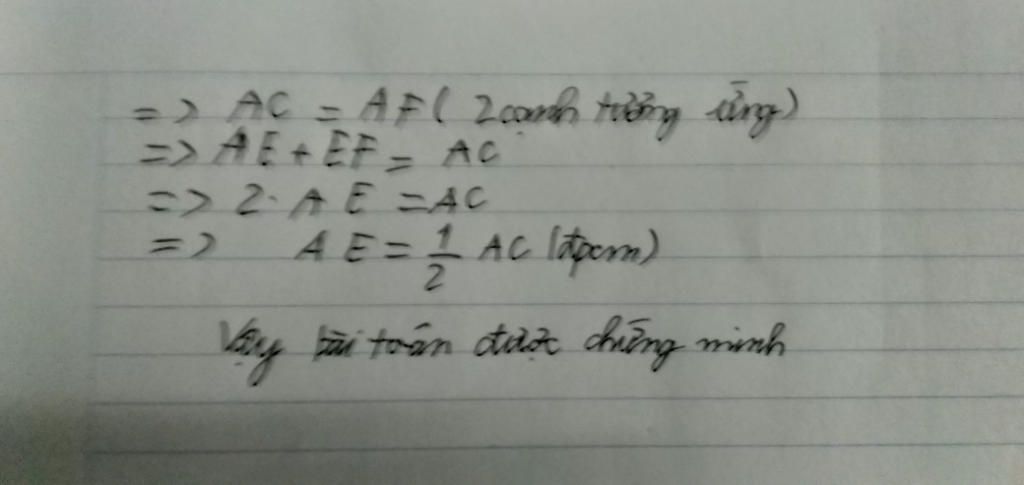 => AC = AF ( 2 cạnh tương ứng)
=> AE + EF = AC
=> 2. AE = AC
=> AE = 1/2 AC (đpcm)
Vậy bài toán được chứng minh